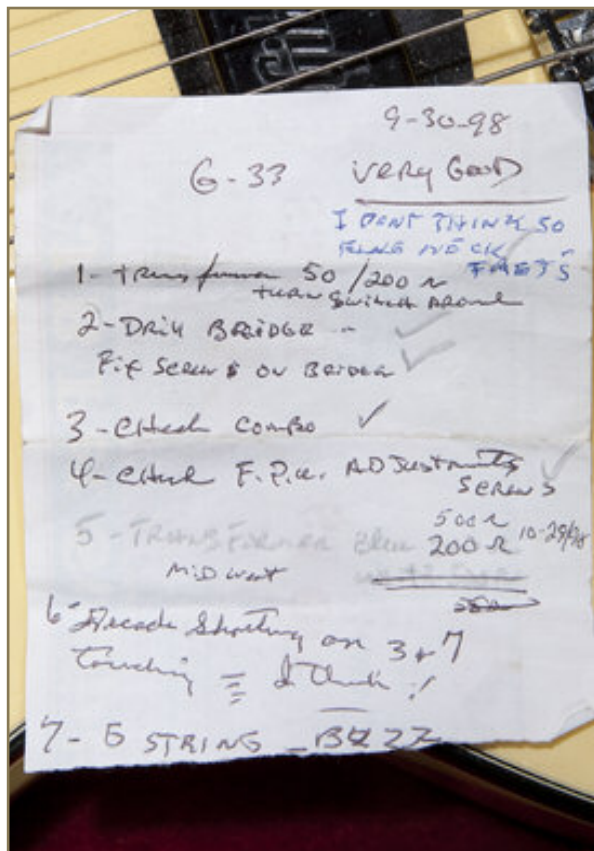 9-30-98
G-33 VERY GOOD
I DONT THINK SO
NECK
FRETS
1- transformer 50/200 Ω
TURN SWITCH AROUND
2- DRILL BRIDGE
FIX SCREWS ON BRIDGE
3- CHECK COMBO
4- CHECK P.U. ADJUSTMENTS
SCREWS
5- TRANSFORMER
500 Ω
200 Ω 10-29/98
6- Decade Shorting on 3+7
touching I think!
7- G STRING - BUZZ